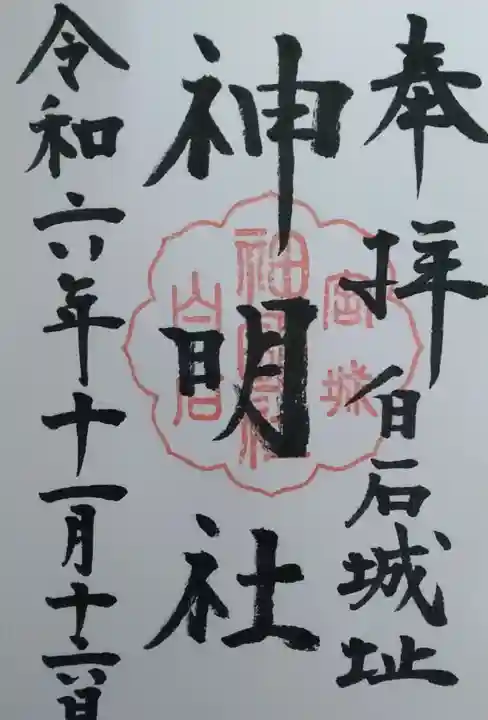 奉拝 白石城址
神明社
令和六年十一月十六日
宮城
神明社
白石